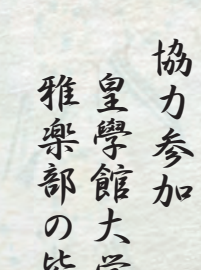 協力参加
皇學館大学
雅楽部の皆